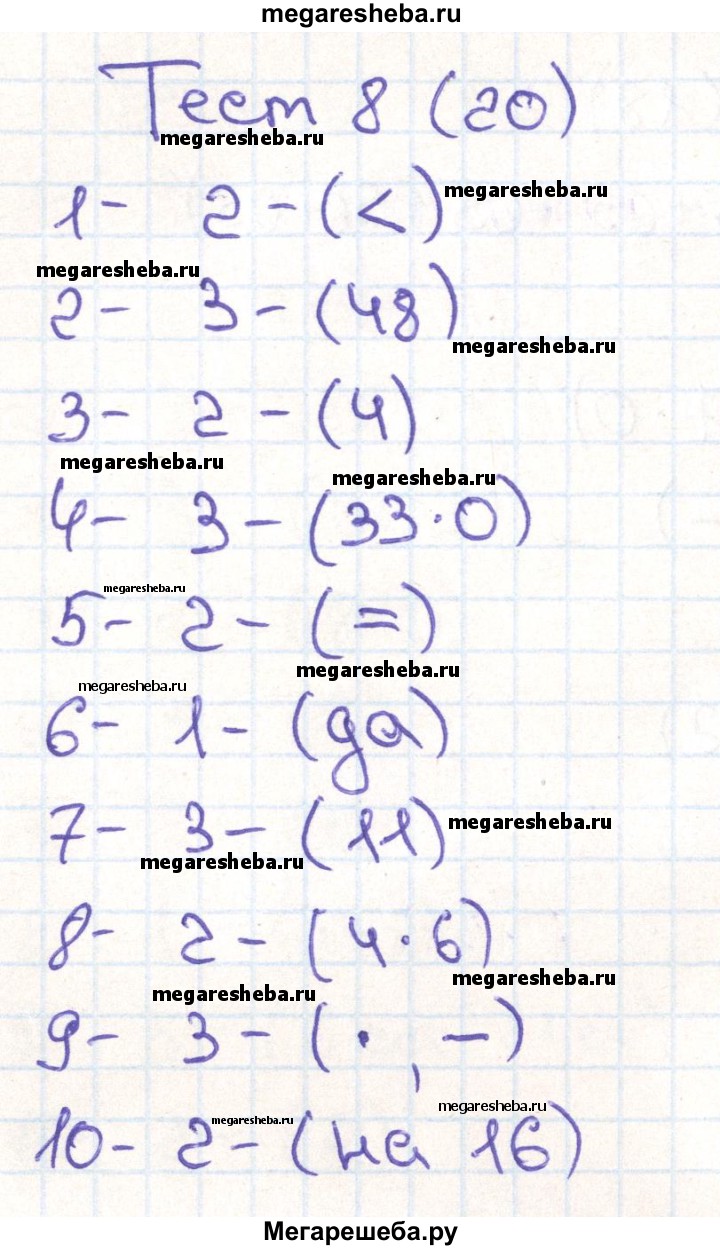 megaresheba.ru
Тест 8 (20)
megaresheba.ru
1- 2-(<) megaresheba.ru
megaresheba.ru
2- 3-(48)
megaresheba.ru
3- 2-(4)
megaresheba.ru
megaresheba.ru
4- 3-(33·0)
megaresheba.ru
5- 2-(=)
megaresheba.ru
megaresheba.ru
6- 1-(да)
7- 3-(11) megaresheba.ru
megaresheba.ru
8- 2-(4·6)
megaresheba.ru
megaresheba.ru
9- 3-(·, -)
megaresheba.ru
megaresheba.ru
10- 2-(на 16)
Мегарешеба.ру